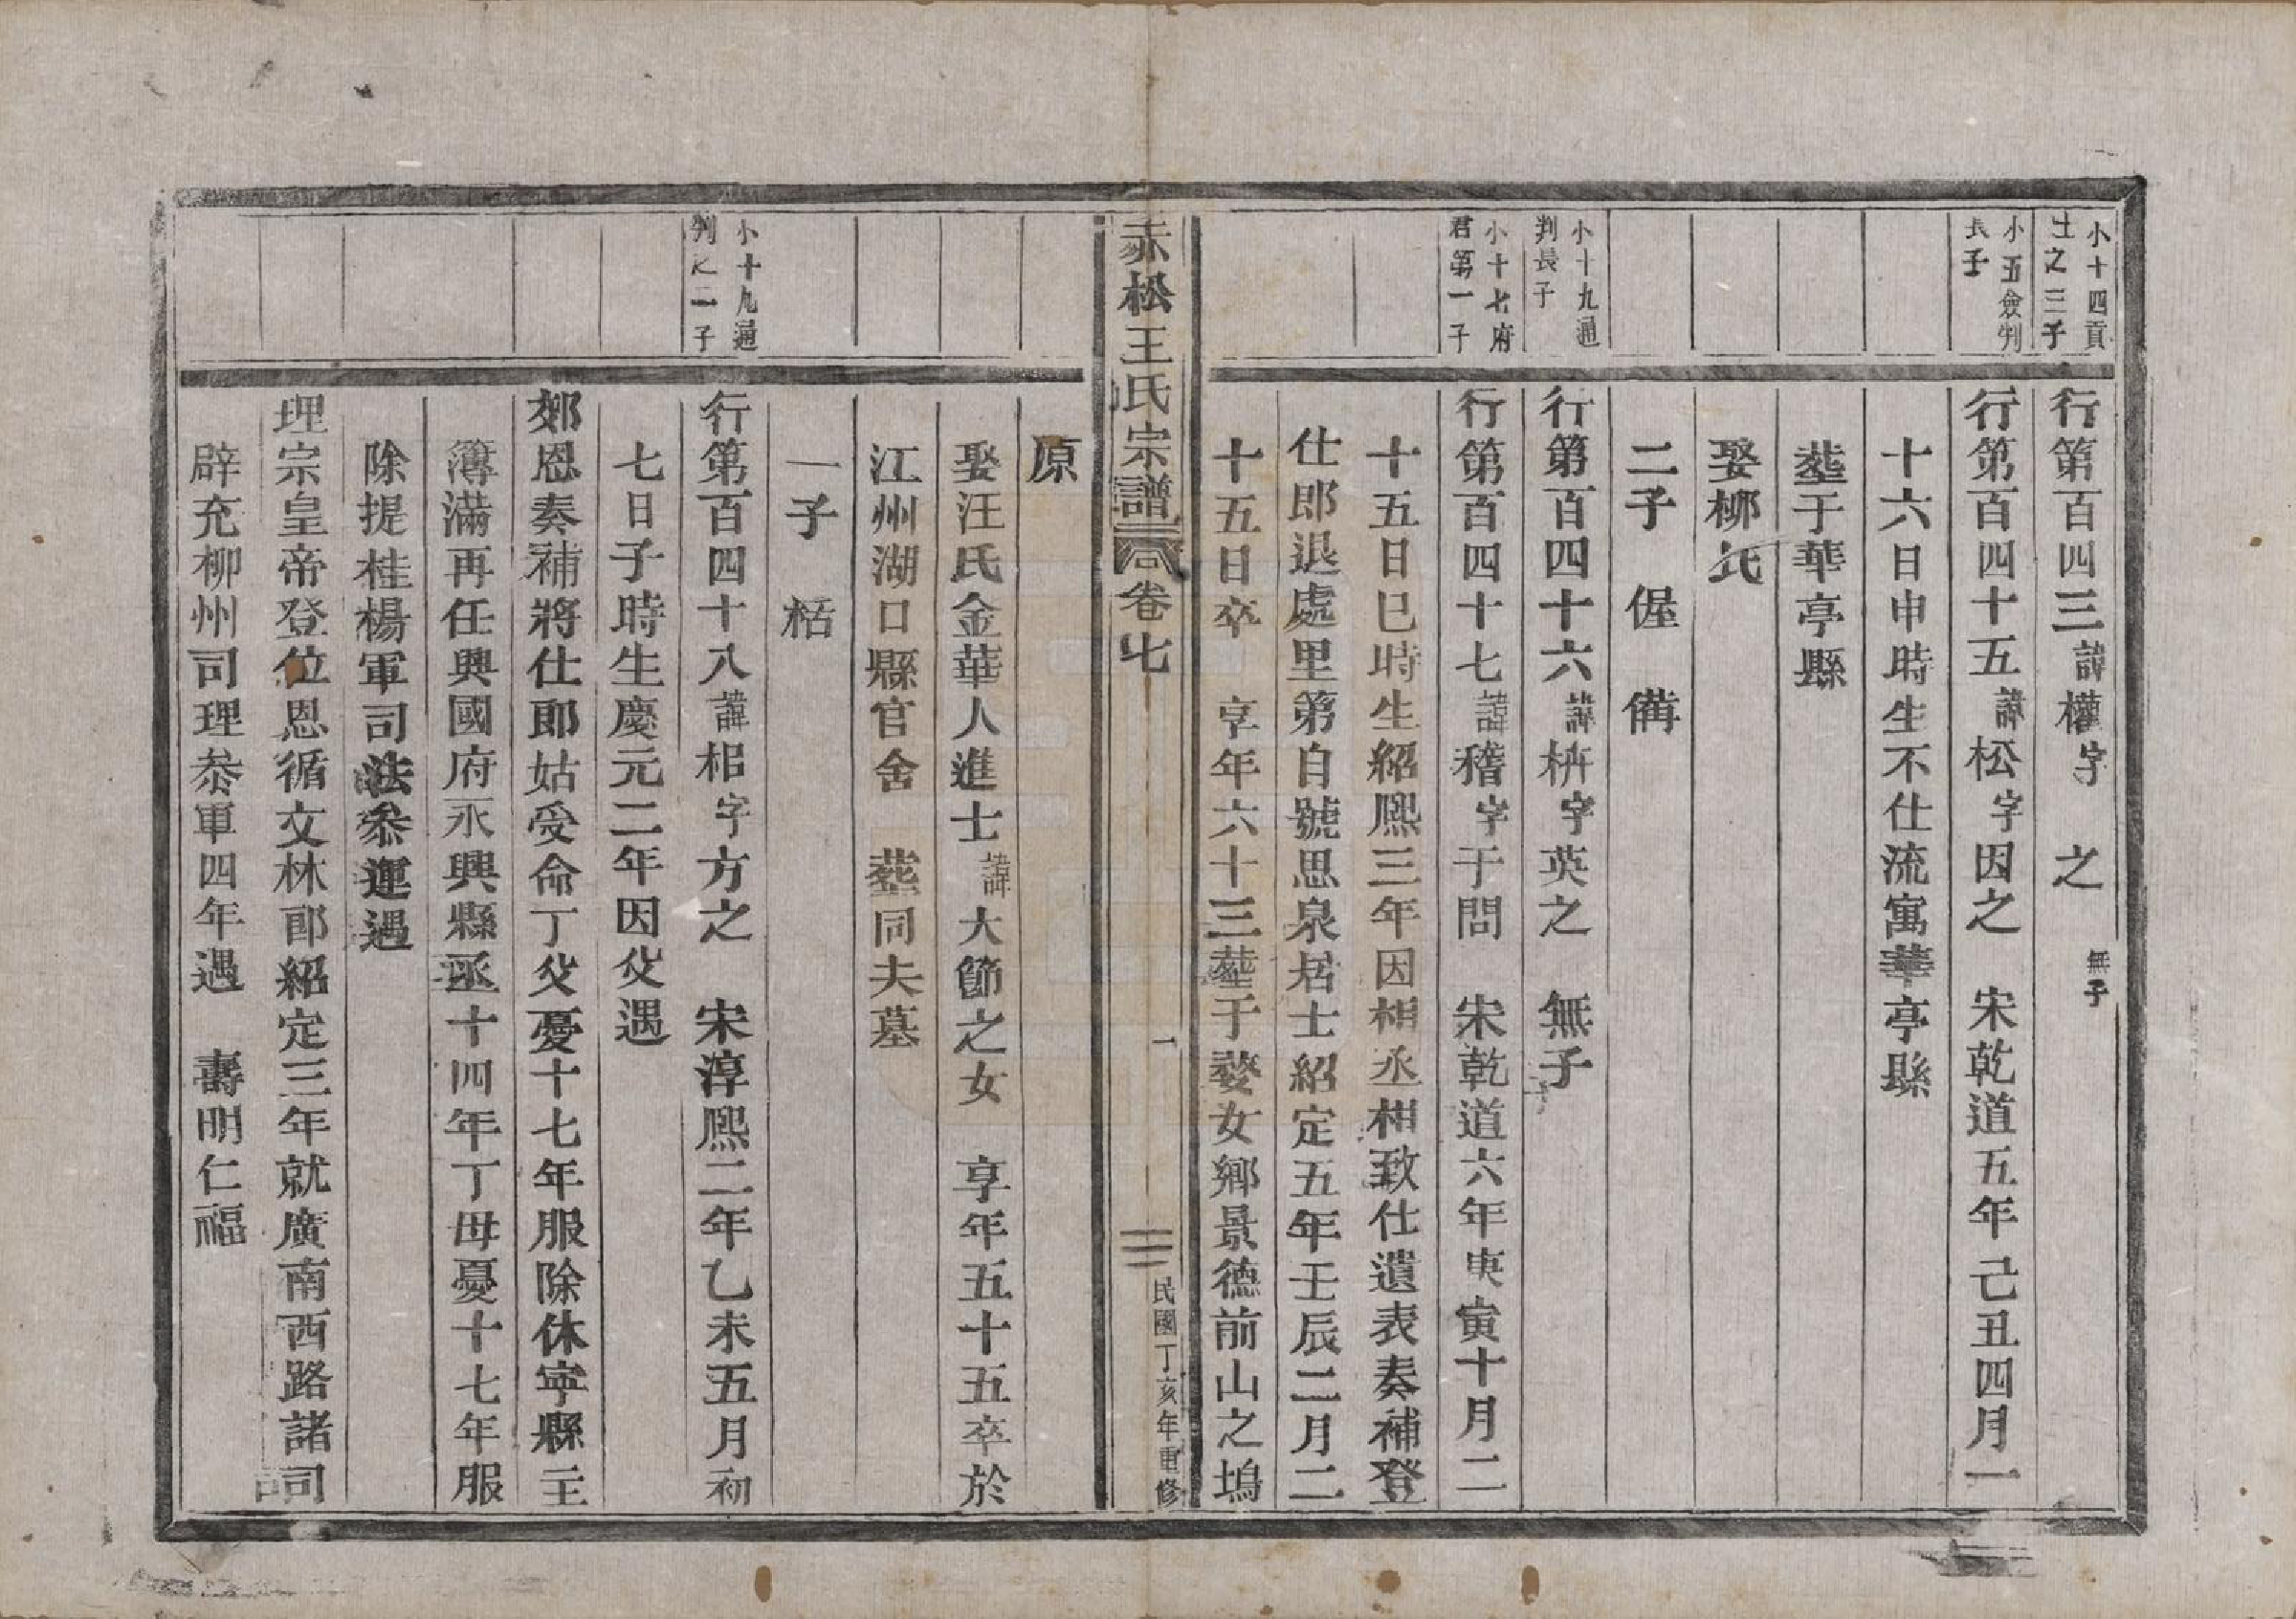 小十四貢
士之三子
行第百四三諱權字　之　無子
小五僉判
長子
行第百四十五諱松字因之　宋乾道五年己丑四月一
十六日申時生不仕流寓華亭縣
塟于華亭縣
娶柳氏
二子　偓　備
小十九通
判長子
行第百四十六諱枅字英之　無子
小十七府
君第一子
行第百四十七諱稽字于問　宋乾道六年庚寅十月二
十五日巳時生紹熙三年因相丞相致仕遺表奏補登
仕郎退處里第自號思泉居士紹定五年壬辰二月二
十五日卒　享年六十三塟于婺女鄉景德前山之塢
赤松王氏宗譜　卷七　一　民國丁亥年重修
原
娶汪氏金華人進士諱大節之女　享年五十五卒於
江州湖口縣官舍　塟同夫墓
一子　栝
小十九通
判之二子
行第百四十八諱柖字方之　宋淳熙二年乙未五月初
七日子時生慶元二年因父遇
郊恩奏補將仕郎姑受命丁父憂十七年服除休寧縣主
簿滿再任興國府永興縣丞十四年丁母憂十七年服
除提桂楊軍司法叅運遇
理宗皇帝登位恩循文林郎紹定三年就廣南西路諸司
辟充柳州司理叅軍四年遇　壽明仁福